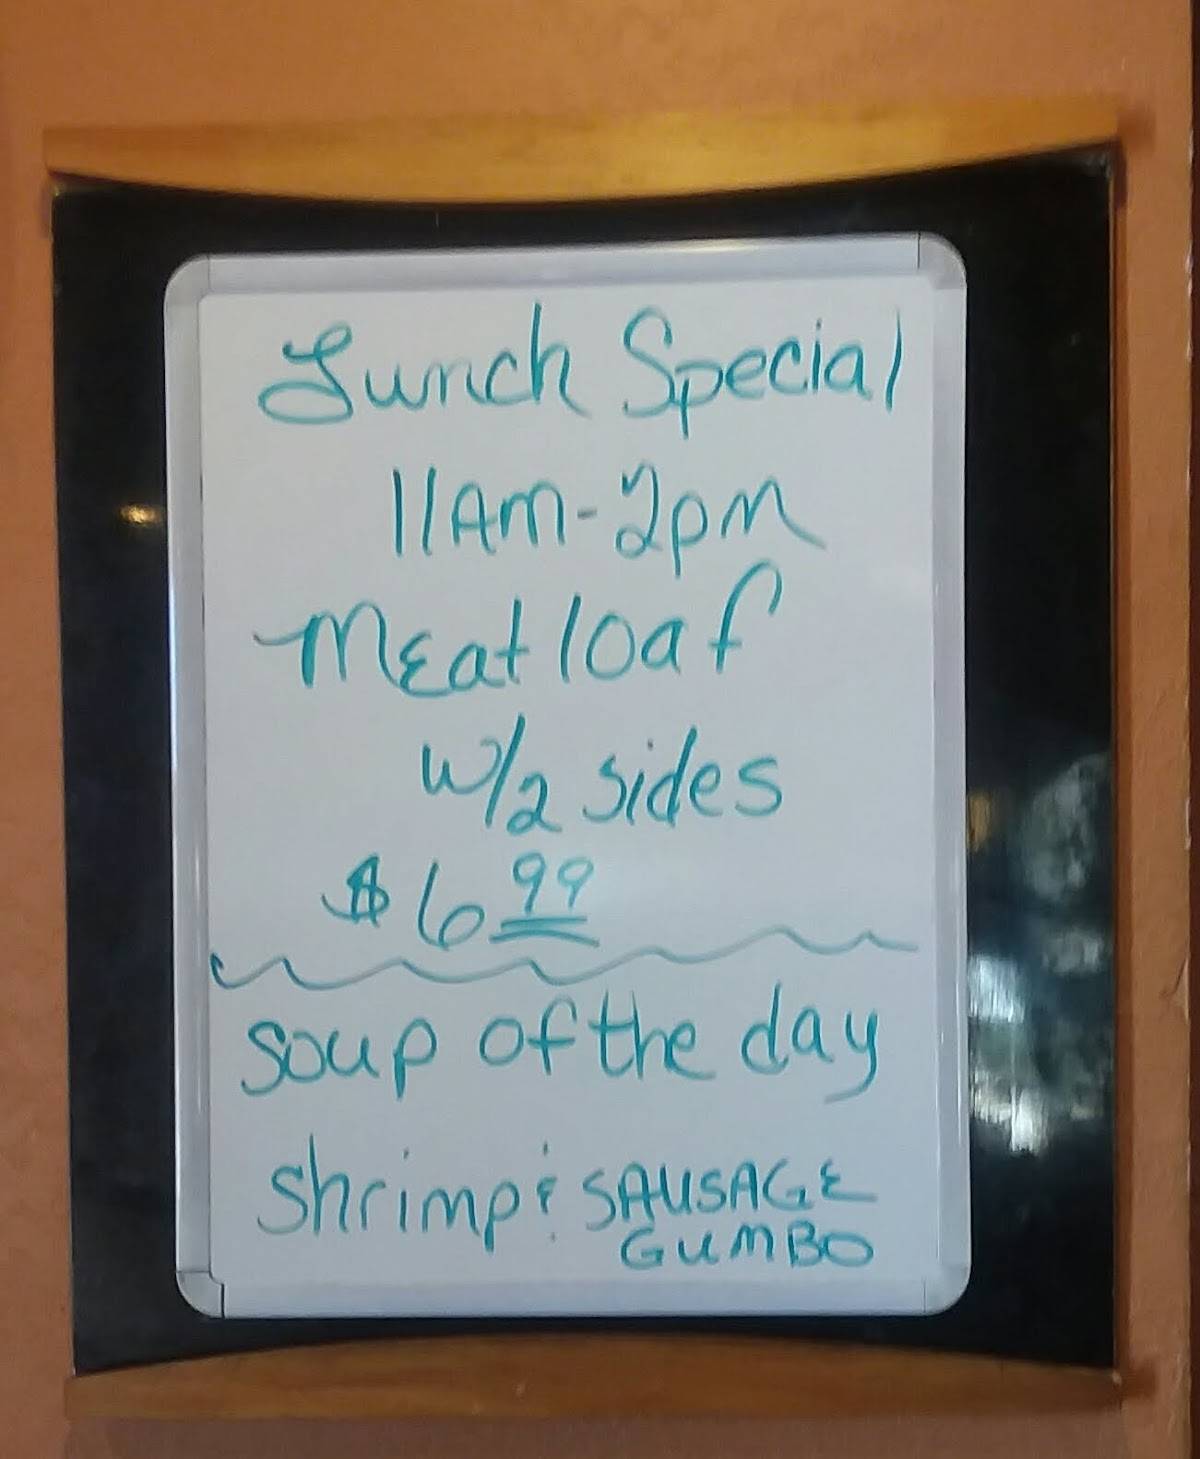 Lunch Special
11Am-2pm
mEatloaf
w/2 sides
$6 99
soup of the day
shrimp & SAUSAGE
GUmBO